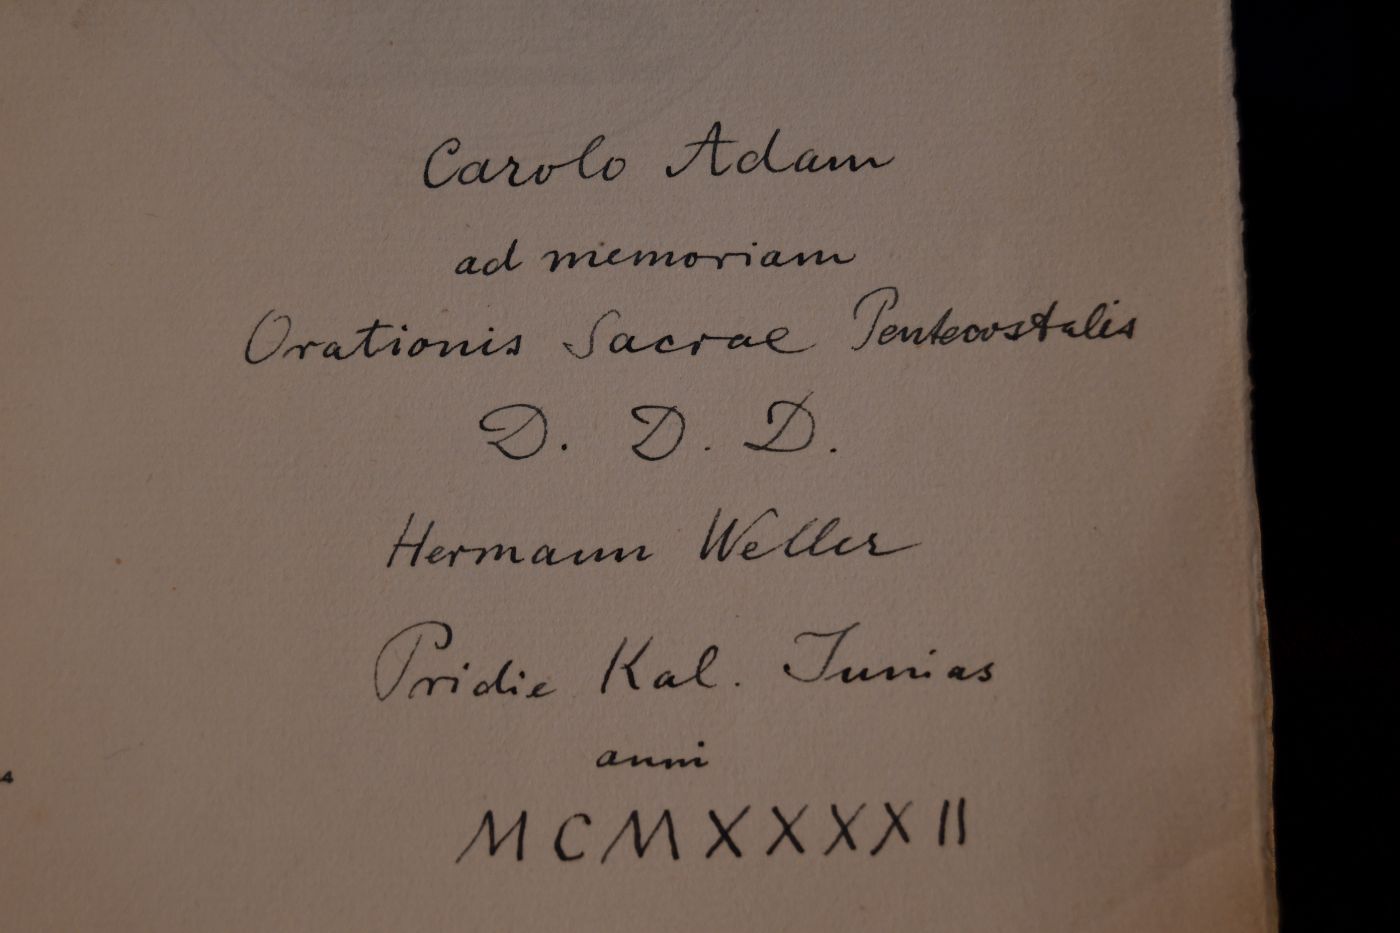 Carolo Adam
ad memoriam
Orationis Sacrae Pentecostalis
D. D. D.
Hermann Weller
Pridie Kal. Junias
anni
MCMXXXXII
4